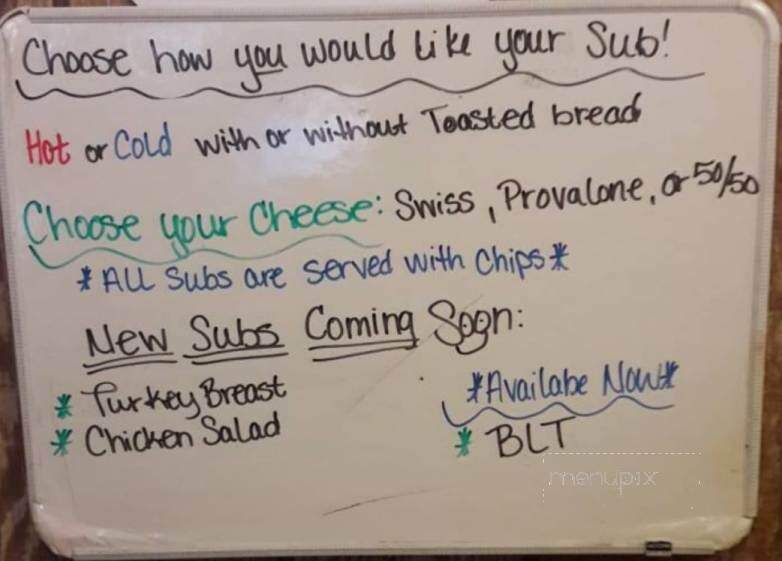 Choose how you would like your Sub!
Hot or Cold with or without Toasted bread
Choose your Cheese: Swiss, Provalone, or 50/50
*ALL Subs are served with Chips*
New Subs Coming Soon:
* Turkey Breast
* Chicken Salad
*Availabe Now*
* BLT
menupix